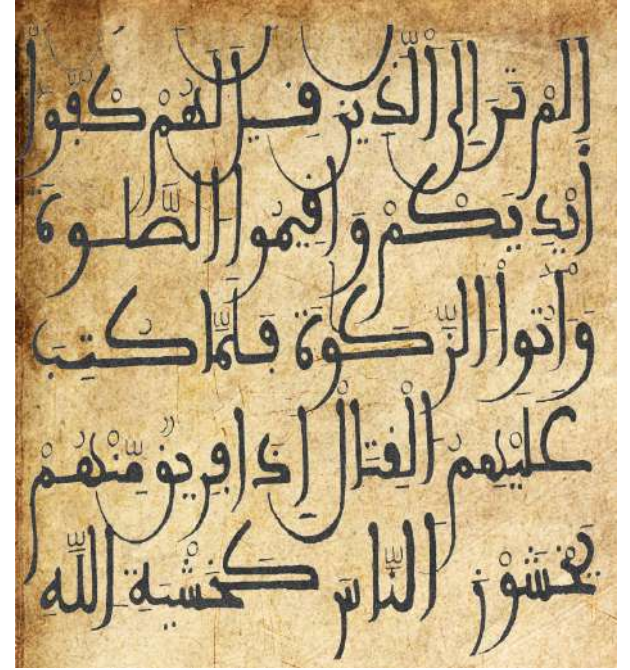 اَلَمْ تَرَ إِلَى اَلذِينَ قِيلَ لَهُمْ كُفُّوٓاْ
أَيْدِيَكُمْ وَأَقِيمُواْ اَلصَّلَوٰةَ
وَءَاتُواْ اَلزَّكَوٰةَ فَلَمَّا كُتِبَ
عَلَيْهِمُ اَلْقِتَالُ إِذَا فَرِيقٌ مِّنْهُمْ
يَخْشَوْنَ اَلنَّاسَ كَخَشْيَةِ اِللَّهِ